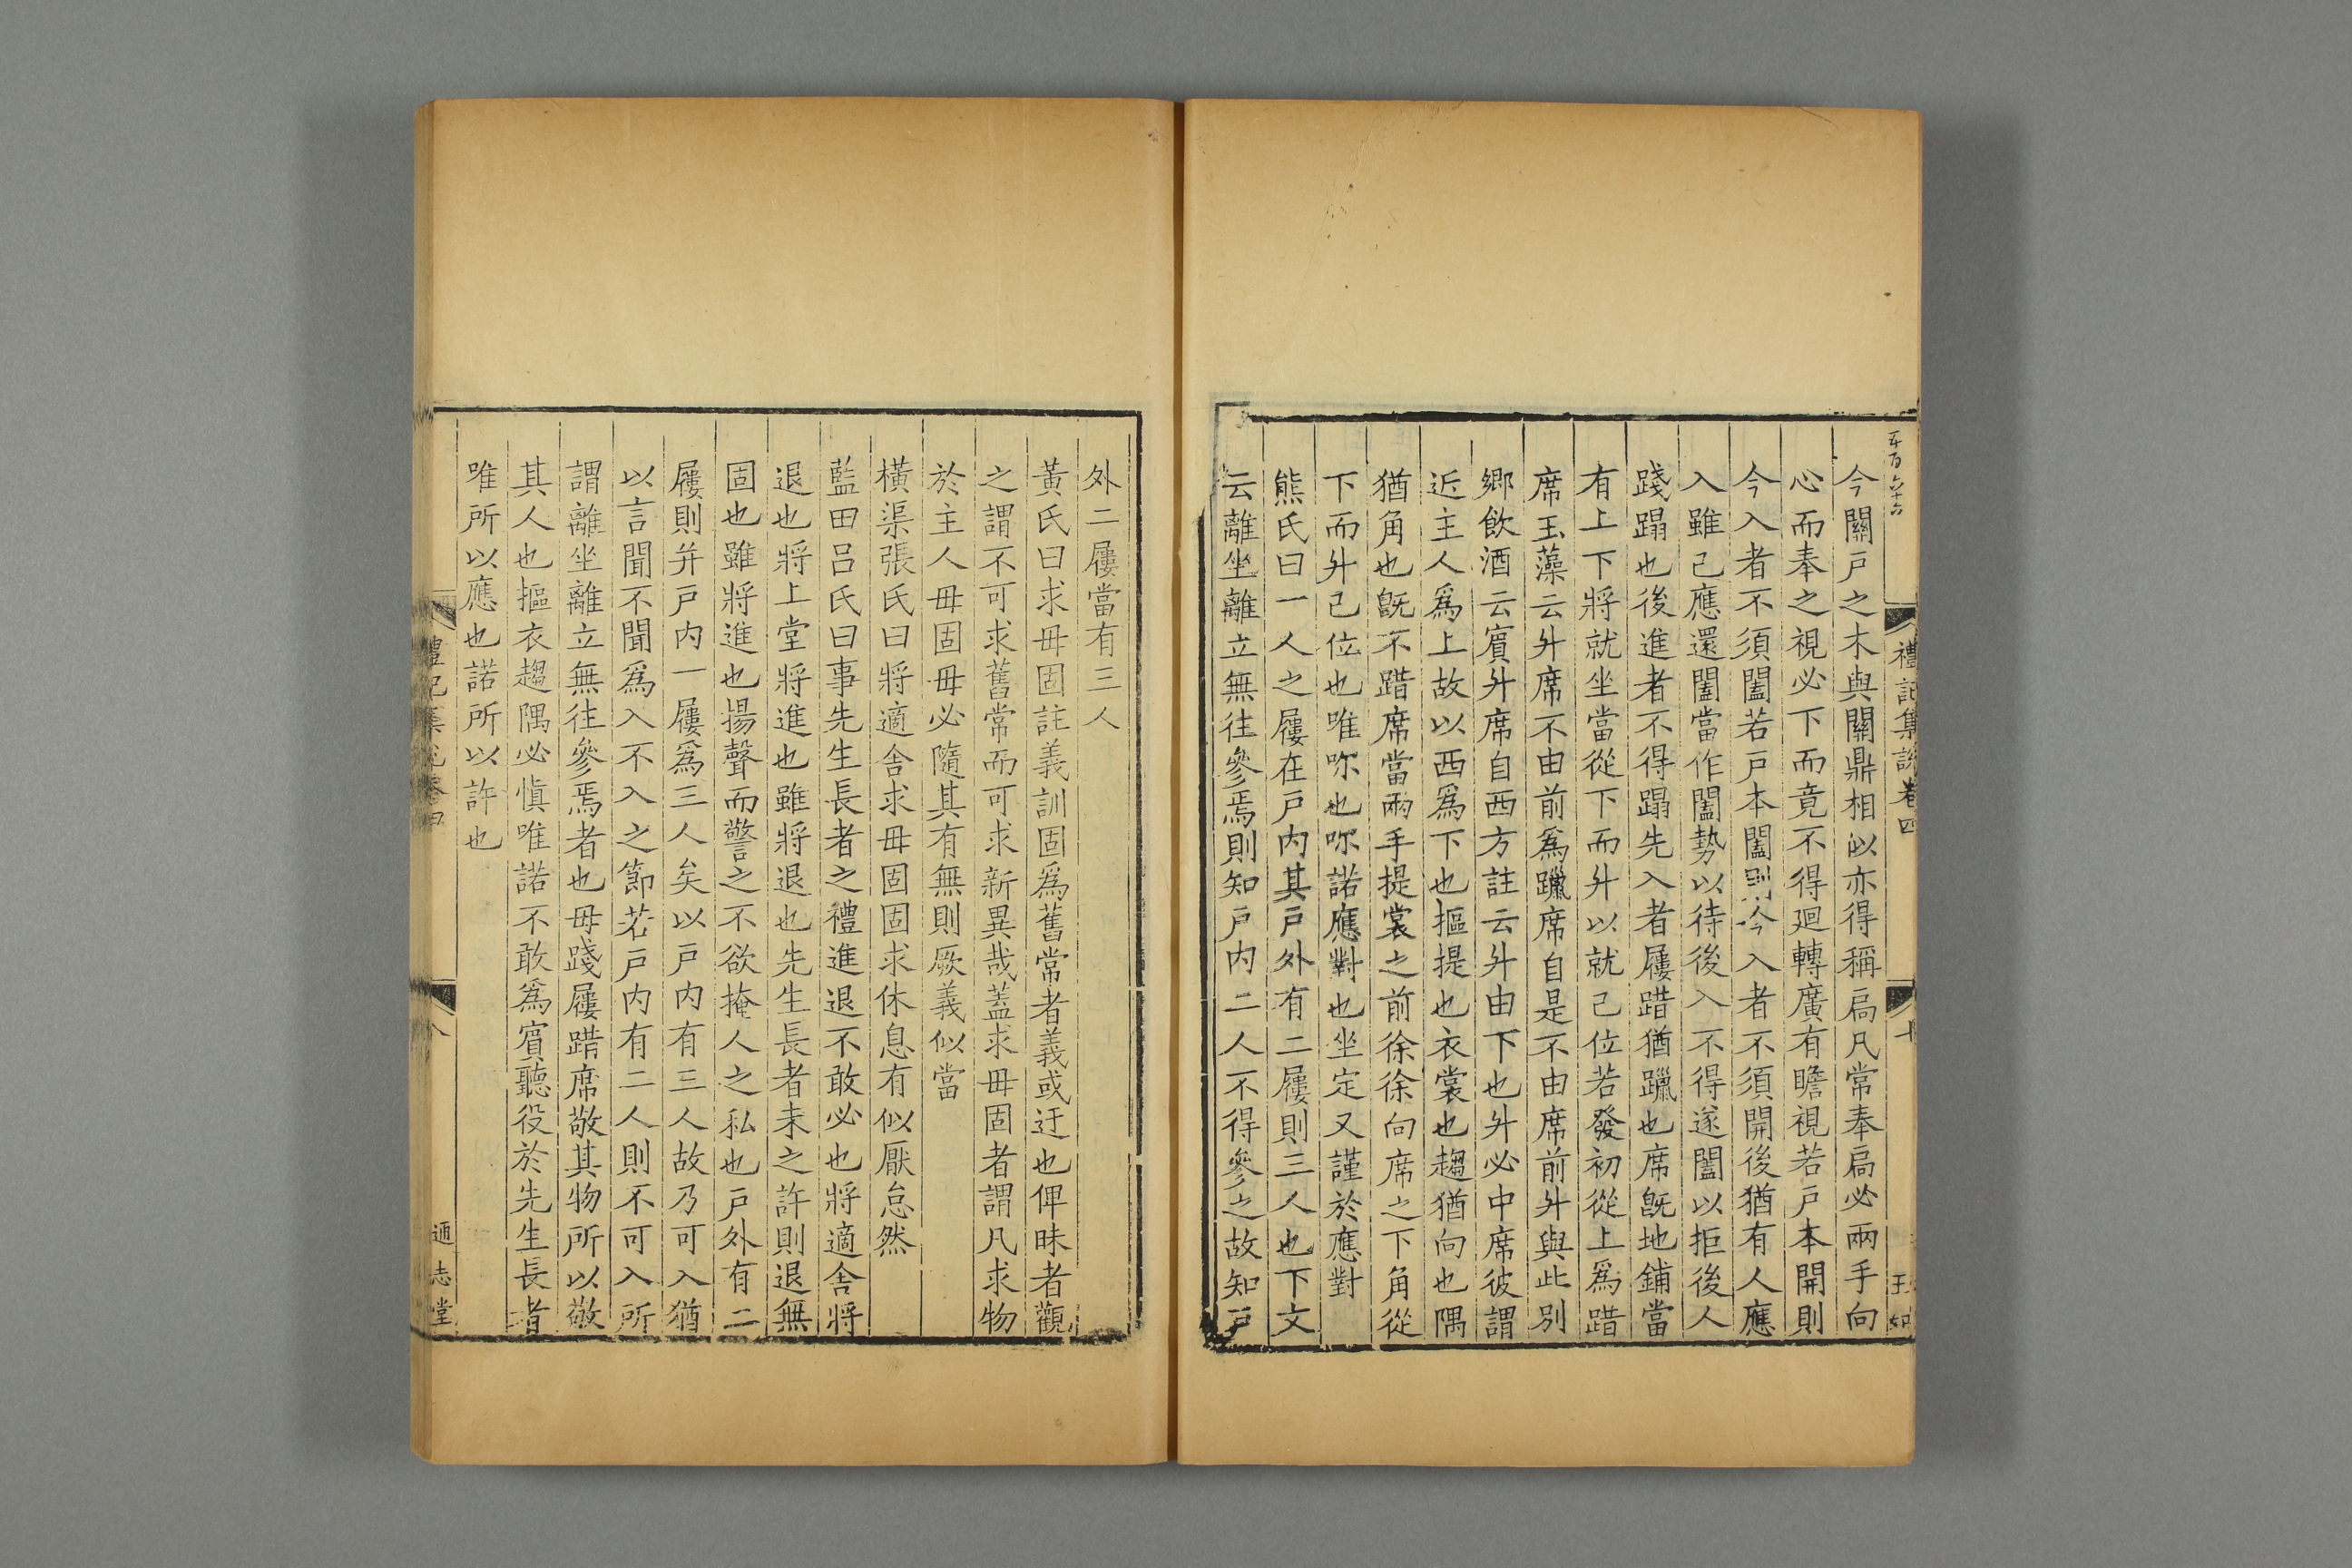 禮記集說卷四
今關戶之木與關鼎相似亦得稱扃凡常奉扃必兩手向
心而奉之視必下而竟不得廻轉廣有瞻視若戶本開則
今入者不須闔若戶本闔則今入者不須開後猶有人應
入雖己應還闔當作闔勢以待後入不得遂闔以拒後人
踐蹋也後進者不得蹋先入者屨踖猶躐也席旣地鋪當
有上下將就坐當從下而升以就己位若發初從上爲踖
席玉藻云升席不由前爲躐席自是不由席前升與此別
鄉飲酒云賓升席自西方註云升由下也升必中席彼謂
近主人爲上故以西爲下也摳提也衣裳也趨猶向也隅
猶角也旣不踖席當兩手提裳之前徐徐向席之下角從
下而升己位也唯㖇也㖇諾應對也坐定又謹於應對
熊氏曰一人之屨在戶內其戶外有二屨則三人也下文
云離坐離立無往參焉則知戶內二人不得參之故知戶
外二屨當有三人
黃氏曰求毋固註義訓固爲舊常者義或迂也俾昧者觀
之謂不可求舊常而可求新異哉蓋求毋固者謂凡求物
於主人毋固毋必隨其有無則厥義似當
橫渠張氏曰將適舍求毋固固求休息有似厭怠然
藍田呂氏曰事先生長者之禮進退不敢必也將適舍將
退也將上堂將進也雖將退也先生長者未之許則退無
固也雖將進也揚聲而警之不欲掩人之私也戶外有二
屨則并戶內一屨爲三人矣以戶內有三人故乃可入猶
以言聞不聞爲入不入之節若戶內有二人則不可入所
謂離坐離立無往參焉者也毋踐屨踖席敬其物所以敬
其人也摳衣趨隅必愼唯諾不敢爲賓聽役於先生長者
唯所以應也諾所以許也
禮記集說卷四
八
通志堂